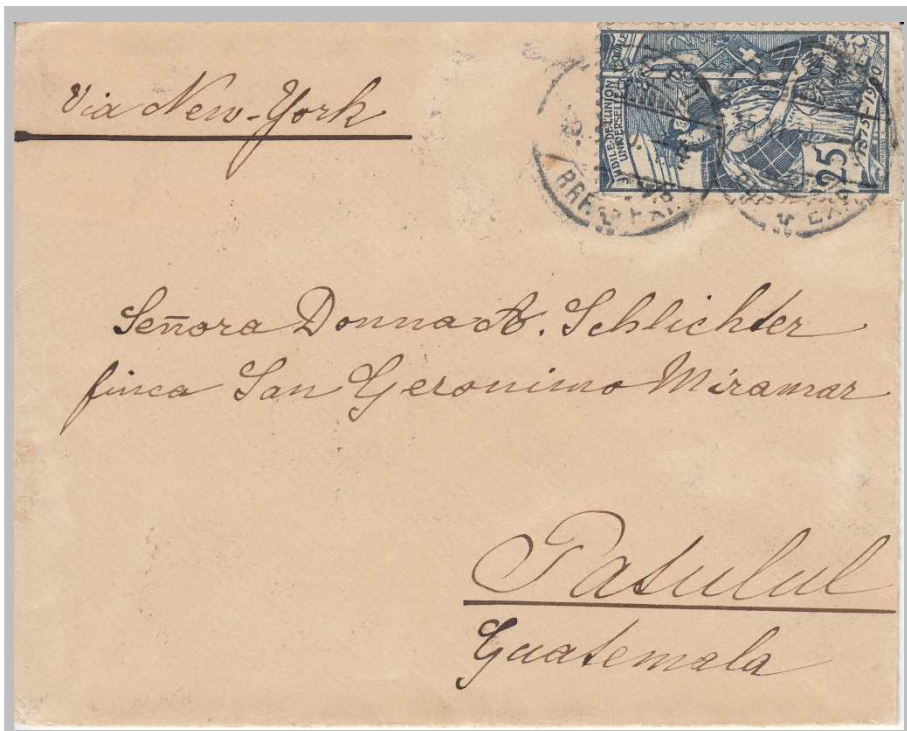 Via New-York
JUBILÉ DE L'UNION
UNIVERSELLE POSTALE
25
1875-1900
BRF. EXP.
Señora Donna A. Schlichter
finca San Geronimo Miramar
Patulul
Guatemala